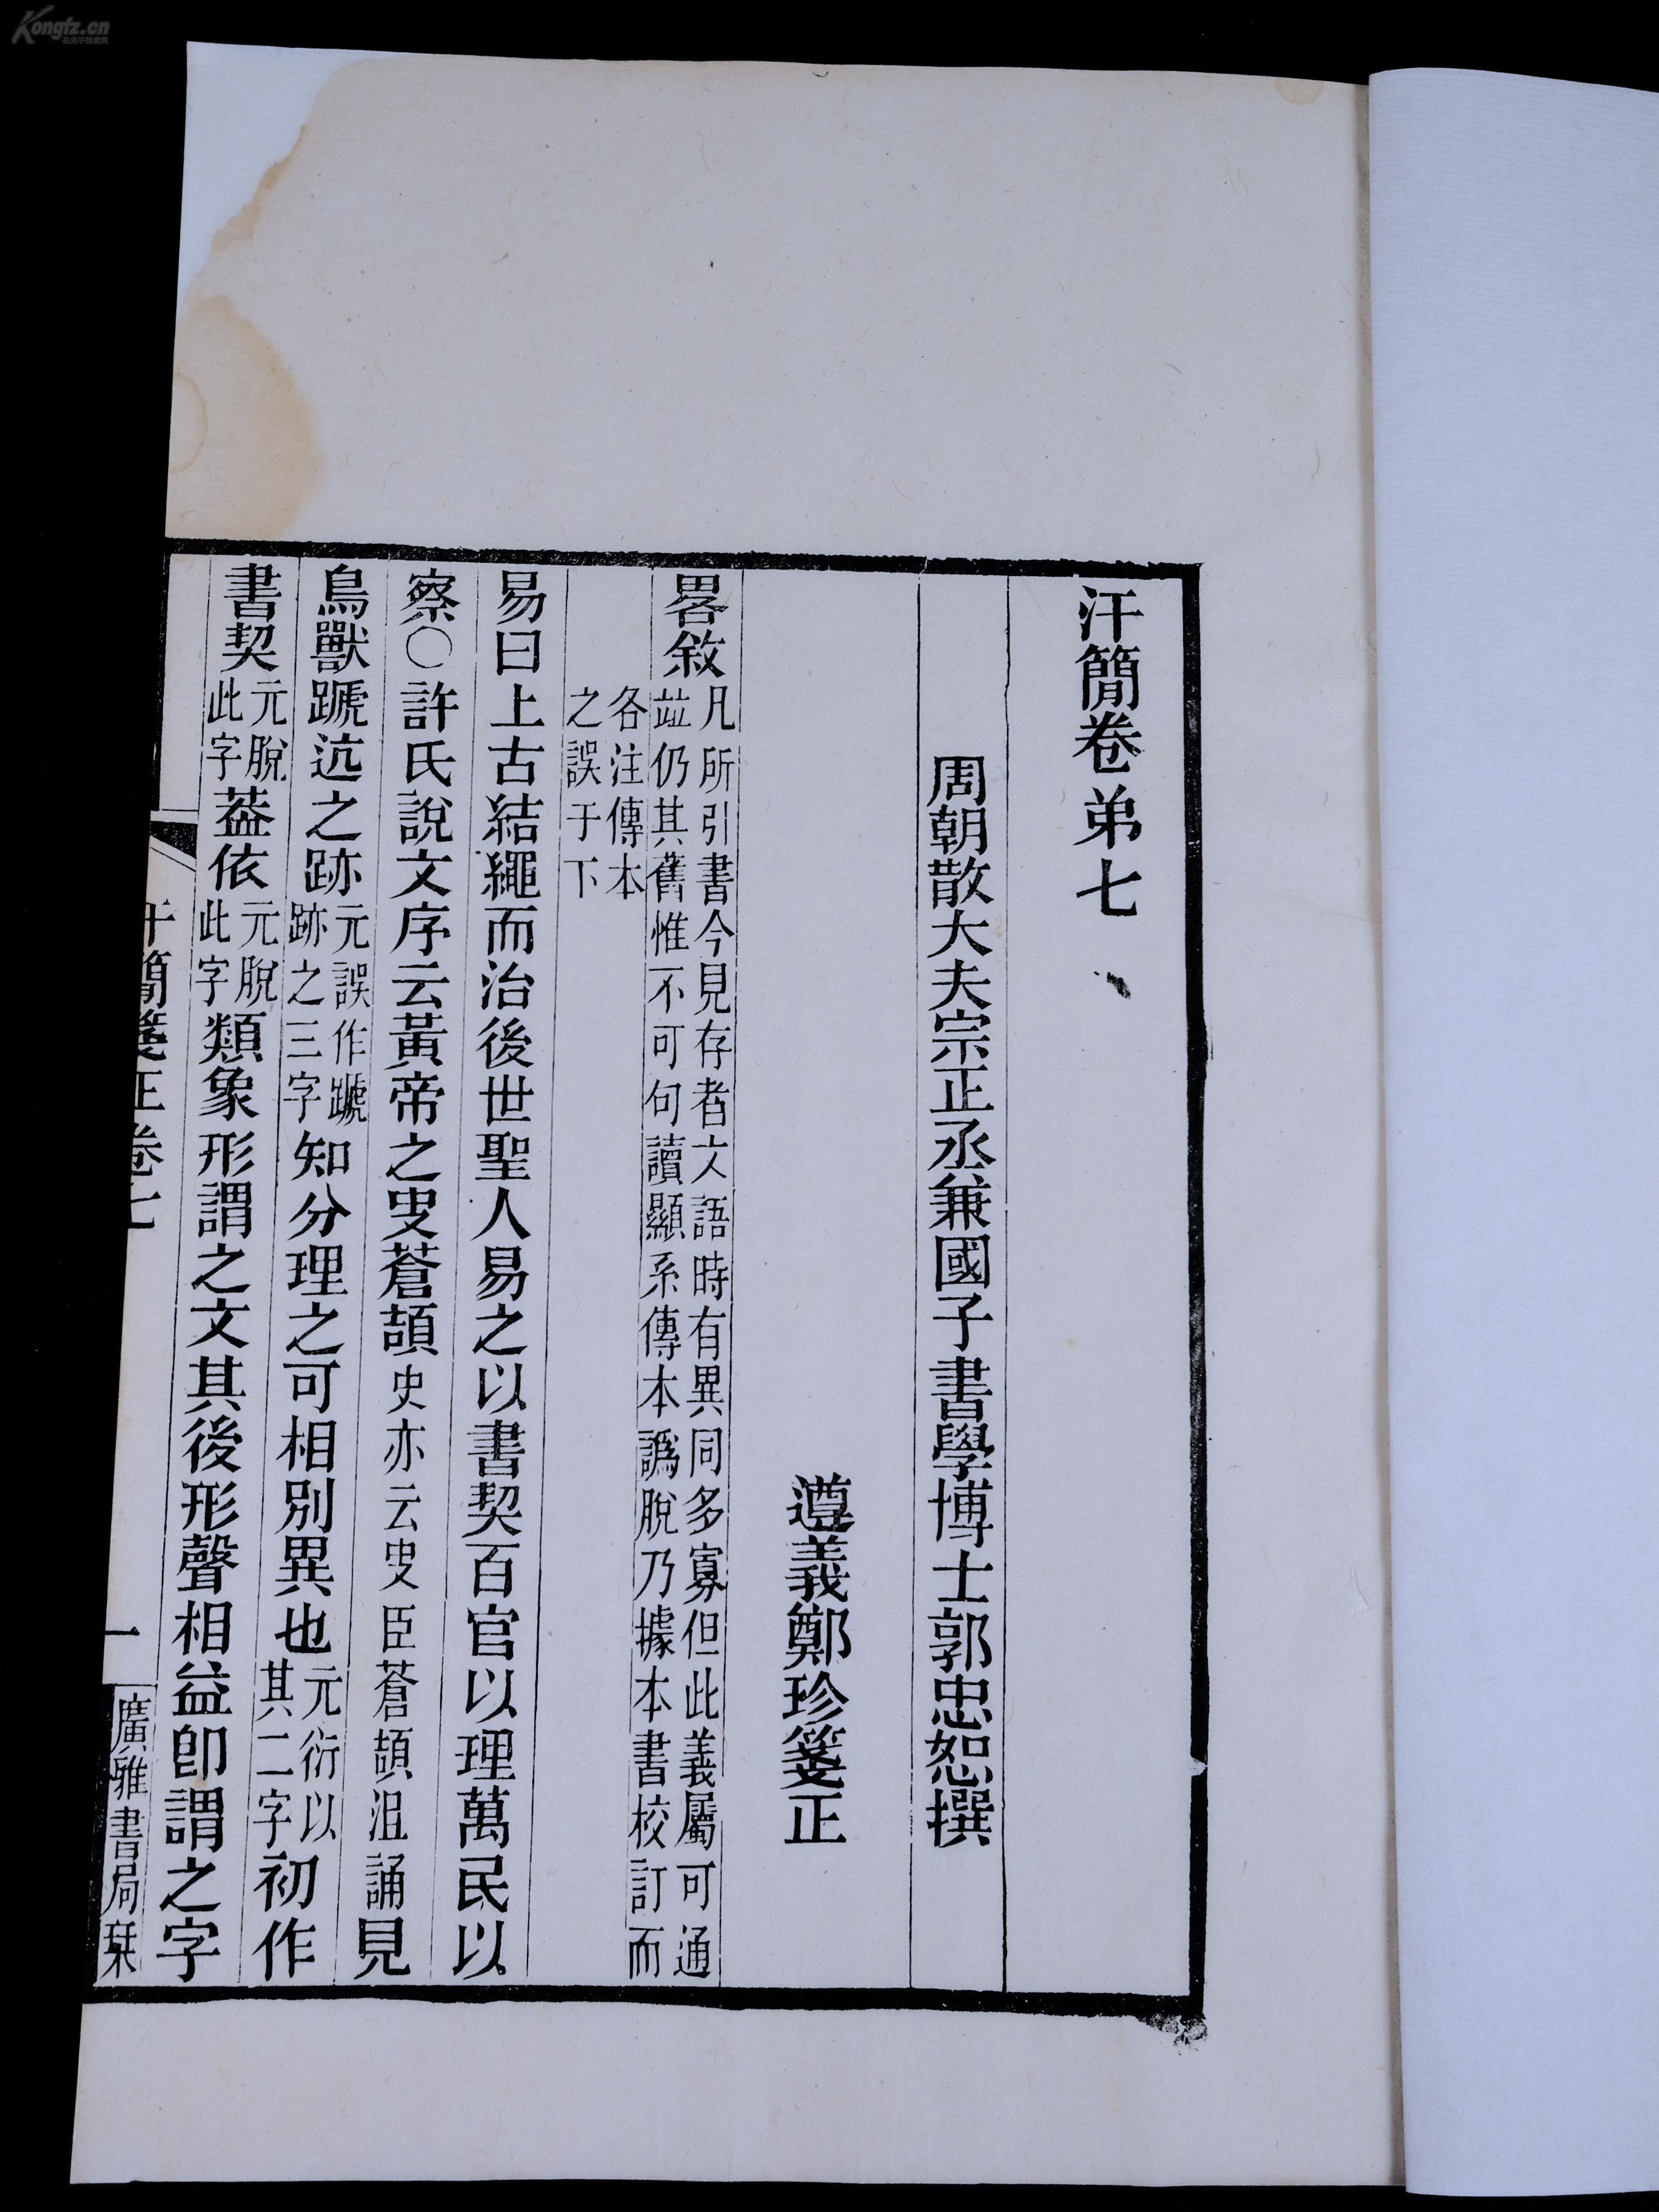 汗簡卷弟七
周朝散大夫宗正丞兼國子書學博士郭忠恕撰
遵義鄭珍箋正
畧敘凡所引書今見存者文語時有異同多寡但此義屬可通
竝仍其舊惟不可句讀顯系傳本譌脫乃據本書校訂而
各注傳本
之誤于下
易曰上古結繩而治後世聖人易之以書契百官以理萬民以
察○許氏說文序云黃帝之㕜蒼頡史亦云㕜臣蒼頡沮誦見
鳥獸蹏迒之跡元誤作蹏跡之三字知分理之可相別異也元衍以其二字初作
書契元脫此字葢依元脫此字類象形謂之文其後形聲相益卽謂之字
汗簡箋正卷七
一
廣雅書局栞
Kongfz.cn
孔夫子拍卖网